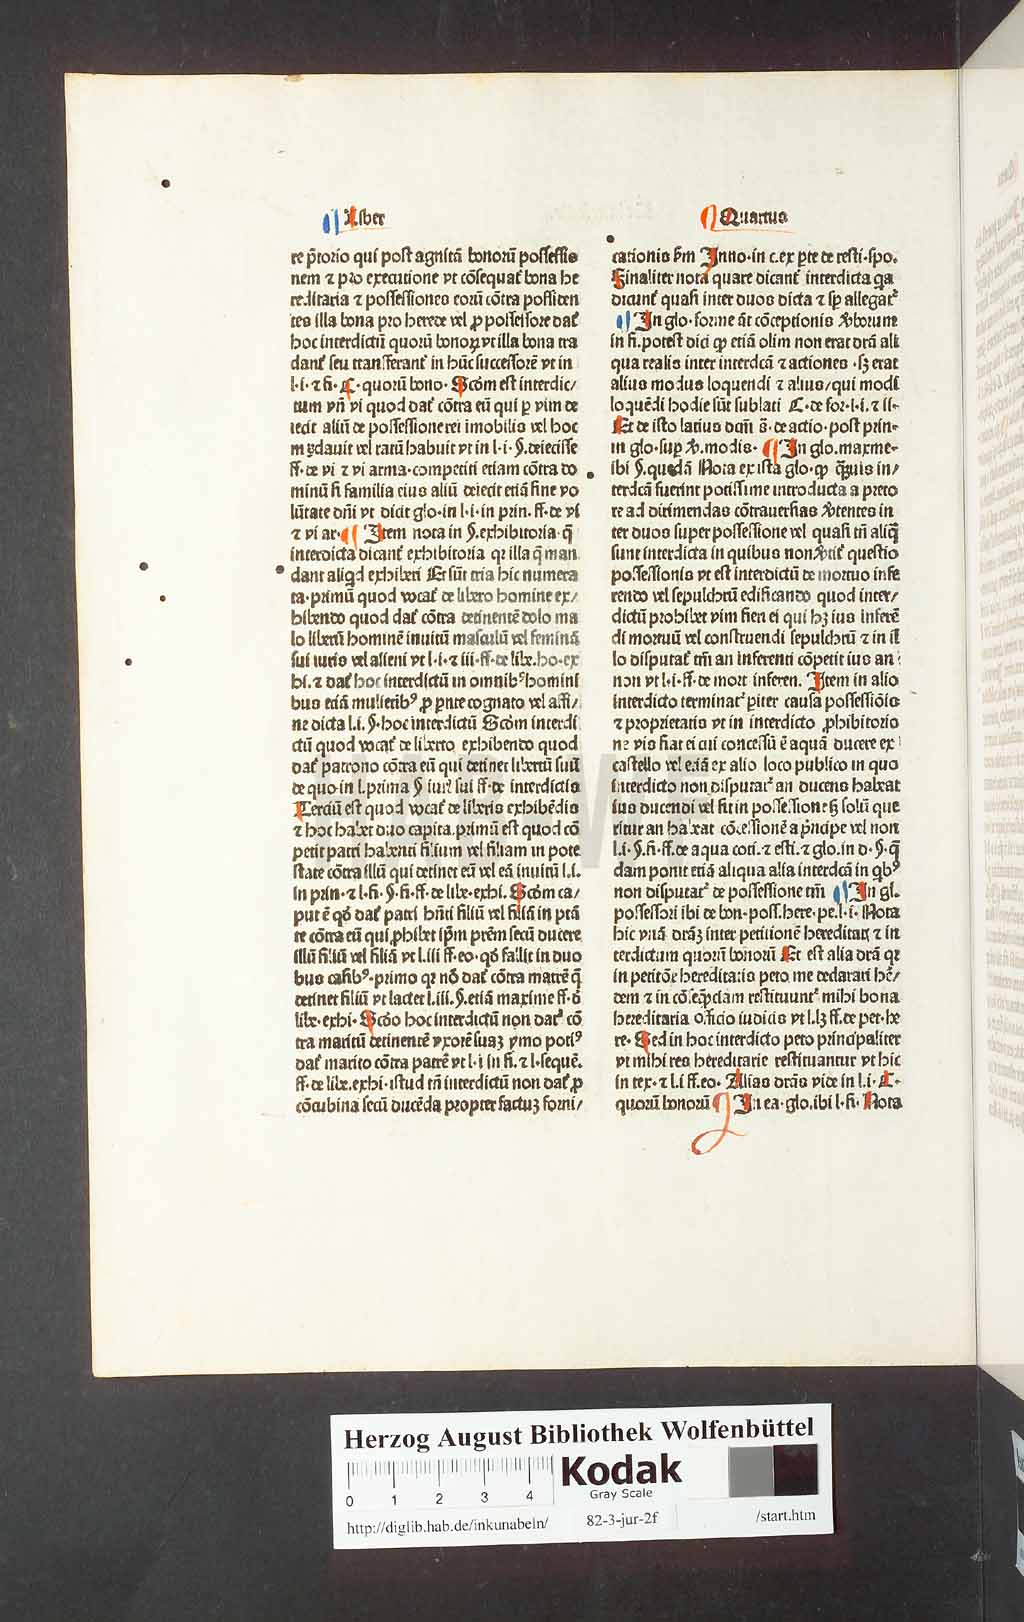 Liber
Quartus
re p̄torio qui post agnitā bonorū possessio
nem ⁊ pro executione vt cōsequat᷑ bona he
reditaria ⁊ possessiones eorū cōtra possiden
tes illa bona pro herede vel ꝓ possessore dat᷑
hoc interdictū quorū bonoꝝ vt illa bona tra
dant᷑ seu transferant᷑ in hūc successorē vt in
l·i·⁊ fi· C· quorū bono· Scōm est interdic/
tum vn̄ vi quod dat᷑ cōtra eū qui ꝑ vim de
iecit aliū de possessione rei imobilis vel hoc
mādauit vel ratū habuit vt in l·i·§·deiecisse
ff·de vi ⁊ vi arma·competit etiam cōtra do
minū si familia eius aliū deiecit etiā sine vo
lūtate dn̄i vt dicit glo·in l·i·in prin·ff·de vi
⁊ vi ar· Item nota in §·exhibitoria·q̄
interdicta dicant᷑ exhibitoria qr illa q̄ man
dant aliqd exhiberi Et sūt tria hic numera
ta·primū quod vocat᷑ de libero homine ex/
hibendo quod dat᷑ cōtra detinentē dolo ma
lo liberū hominē inuitū masculū vel feminā
sui iuris vel alieni vt l·i·⁊ iii·ff·de libe·ho·ex
hi·⁊ dat᷑ hoc interdictū in omnibꝰ homini
bus etiā mulieribꝰ ꝓ pn̄te cognato vel affi/
ne dicta l.i.§·hoc interdictū Scōm interdi
ctū quod vocat᷑ de liberto exhibendo quod
dat᷑ patrono cōtra eū qui detinet libertū suū
de quo in l.prima § iur̄ sui ff·de interdictis
Terciū est quod vocat᷑ de liberis exhibēdis
⁊ hoc habet duo capita.primū est quod cō
petit patri habenti filium vel filiam in pote
state cōtra illū qui detinet eū vel eā inuitū l.i.
in prin·⁊ l·fi·§·fi·ff·de libe·exhi· Scōm ca/
put ē qd̄ dat᷑ patri hn̄ti filiū vel filiā in ptā
te cōtra eū qui ꝓhibet ip̄m prēm secū ducere
illū filiū vel filiā vt l.iii ff·eo·qd̄ fallit in duo
bus casibꝰ·primo qr nō dat᷑ cōtra matrē q̄
detinet filiū vt iacet l.iii.§.etiā maxime ff·d̄
libe·exhi· Scd̄o hoc interdictū non dat᷑ cō
tra maritū detinentē vxorē suaꝫ ymo potiꝰ
dat᷑ marito cōtra patrē vt l·i in fi·⁊ l·sequē.
ff·de libe.exhi·istud tn̄ interdictū non dat᷑ ꝓ
cōcubina secū ducēda propter factuꝫ forni/
cationis s̄m Inno·in c.ex ꝑte de resti·spo.
Finaliter nota quare dicant᷑ interdicta qa
dicunt᷑ quasi inter duos dicta ⁊ sꝑ allegat᷑
In glo·forme āt cōceptionis v̄borum
in fi.potest dici ꝙ etiā olim non erat dr̄a ali
qua realis inter interdcā ⁊ actiones·sꝫ erat
alius modus loquendi ⁊ alius/qui modi
loquēdi hodie sūt sublati C·de for·l·i·⁊ ii·
Et de isto latius dcm̄ s̄·de actio·post prin·
in glo·suꝑ v̄·modis· In glo.maxime·
ibi §.quedā Nota ex ista glo·ꝙ q̄ᷓuis in/
terdcā fuerint potissime introducta a preto
re ad dirimendas cōtrauersias v̄tentes in
ter duos super possessione vel quasi tn̄ aliq̄
sunt interdicta in quibus non v̄tit᷑ questio
possessionis vt est interdictū de mortuo infe
rendo vel sepulchrū edificando quod inter/
dictū prohibet vim fieri ei qui hꝫ ius inferē
di mortuū vel construendi sepulchrū ⁊ in il
lo disputat᷑ tm̄ an inferenti cōpetit ius an
non vt l·i·ff·de mort inferen. Item in alio
interdicto terminat᷑ piter causa possessiōis
⁊ proprietatis vt in interdicto ꝓhibitorio
ne vis fiat ei cui concessū ē aquā ducere ex
castello vel etiā ex alio loco publico in quo
interdicto non disputat᷑ an ducens habeat
ius ducendi vel sit in possessione ꝫ solū que
ritur an habeat cōcessionē a pͥncipe vel non
l.i·§·fi·ff·de aqua coti·⁊ esti·⁊ glo.in d·§·q̄
dam ponit etiā aliqua alia interdcā in qbꝰ
non disputat᷑ de possessione tm̄ In gl.
possessori ibi de bon·poss.here·pe.l·i· Nota
hic vnā dr̄aꝫ inter petitionē hereditatꝭ ⁊ in
terdictum quorū bonorū Et est alia dr̄a qr
in petitōe hereditatis peto me declarari he᷑/
dem ⁊ in cōseq̄ndam restituunt᷑ mihi bona
hereditaria officio iudicis vt l.lꝫ ff.de pet·he
re· Sed in hoc interdicto peto principaliter
vt mihi res hereditarie restituantur vt hic
in tex·⁊ l.i ff.eo· Alias dr̄as vide in l.i·C·
quorū bonorū In ea·glo.ibi l·fi· Nota
HAB WF
Herzog August Bibliothek Wolfenbüttel
0 1 2 3 4
Kodak
Gray Scale
http://diglib.hab.de/inkunabeln/
82-3-jur-2f
/start.htm